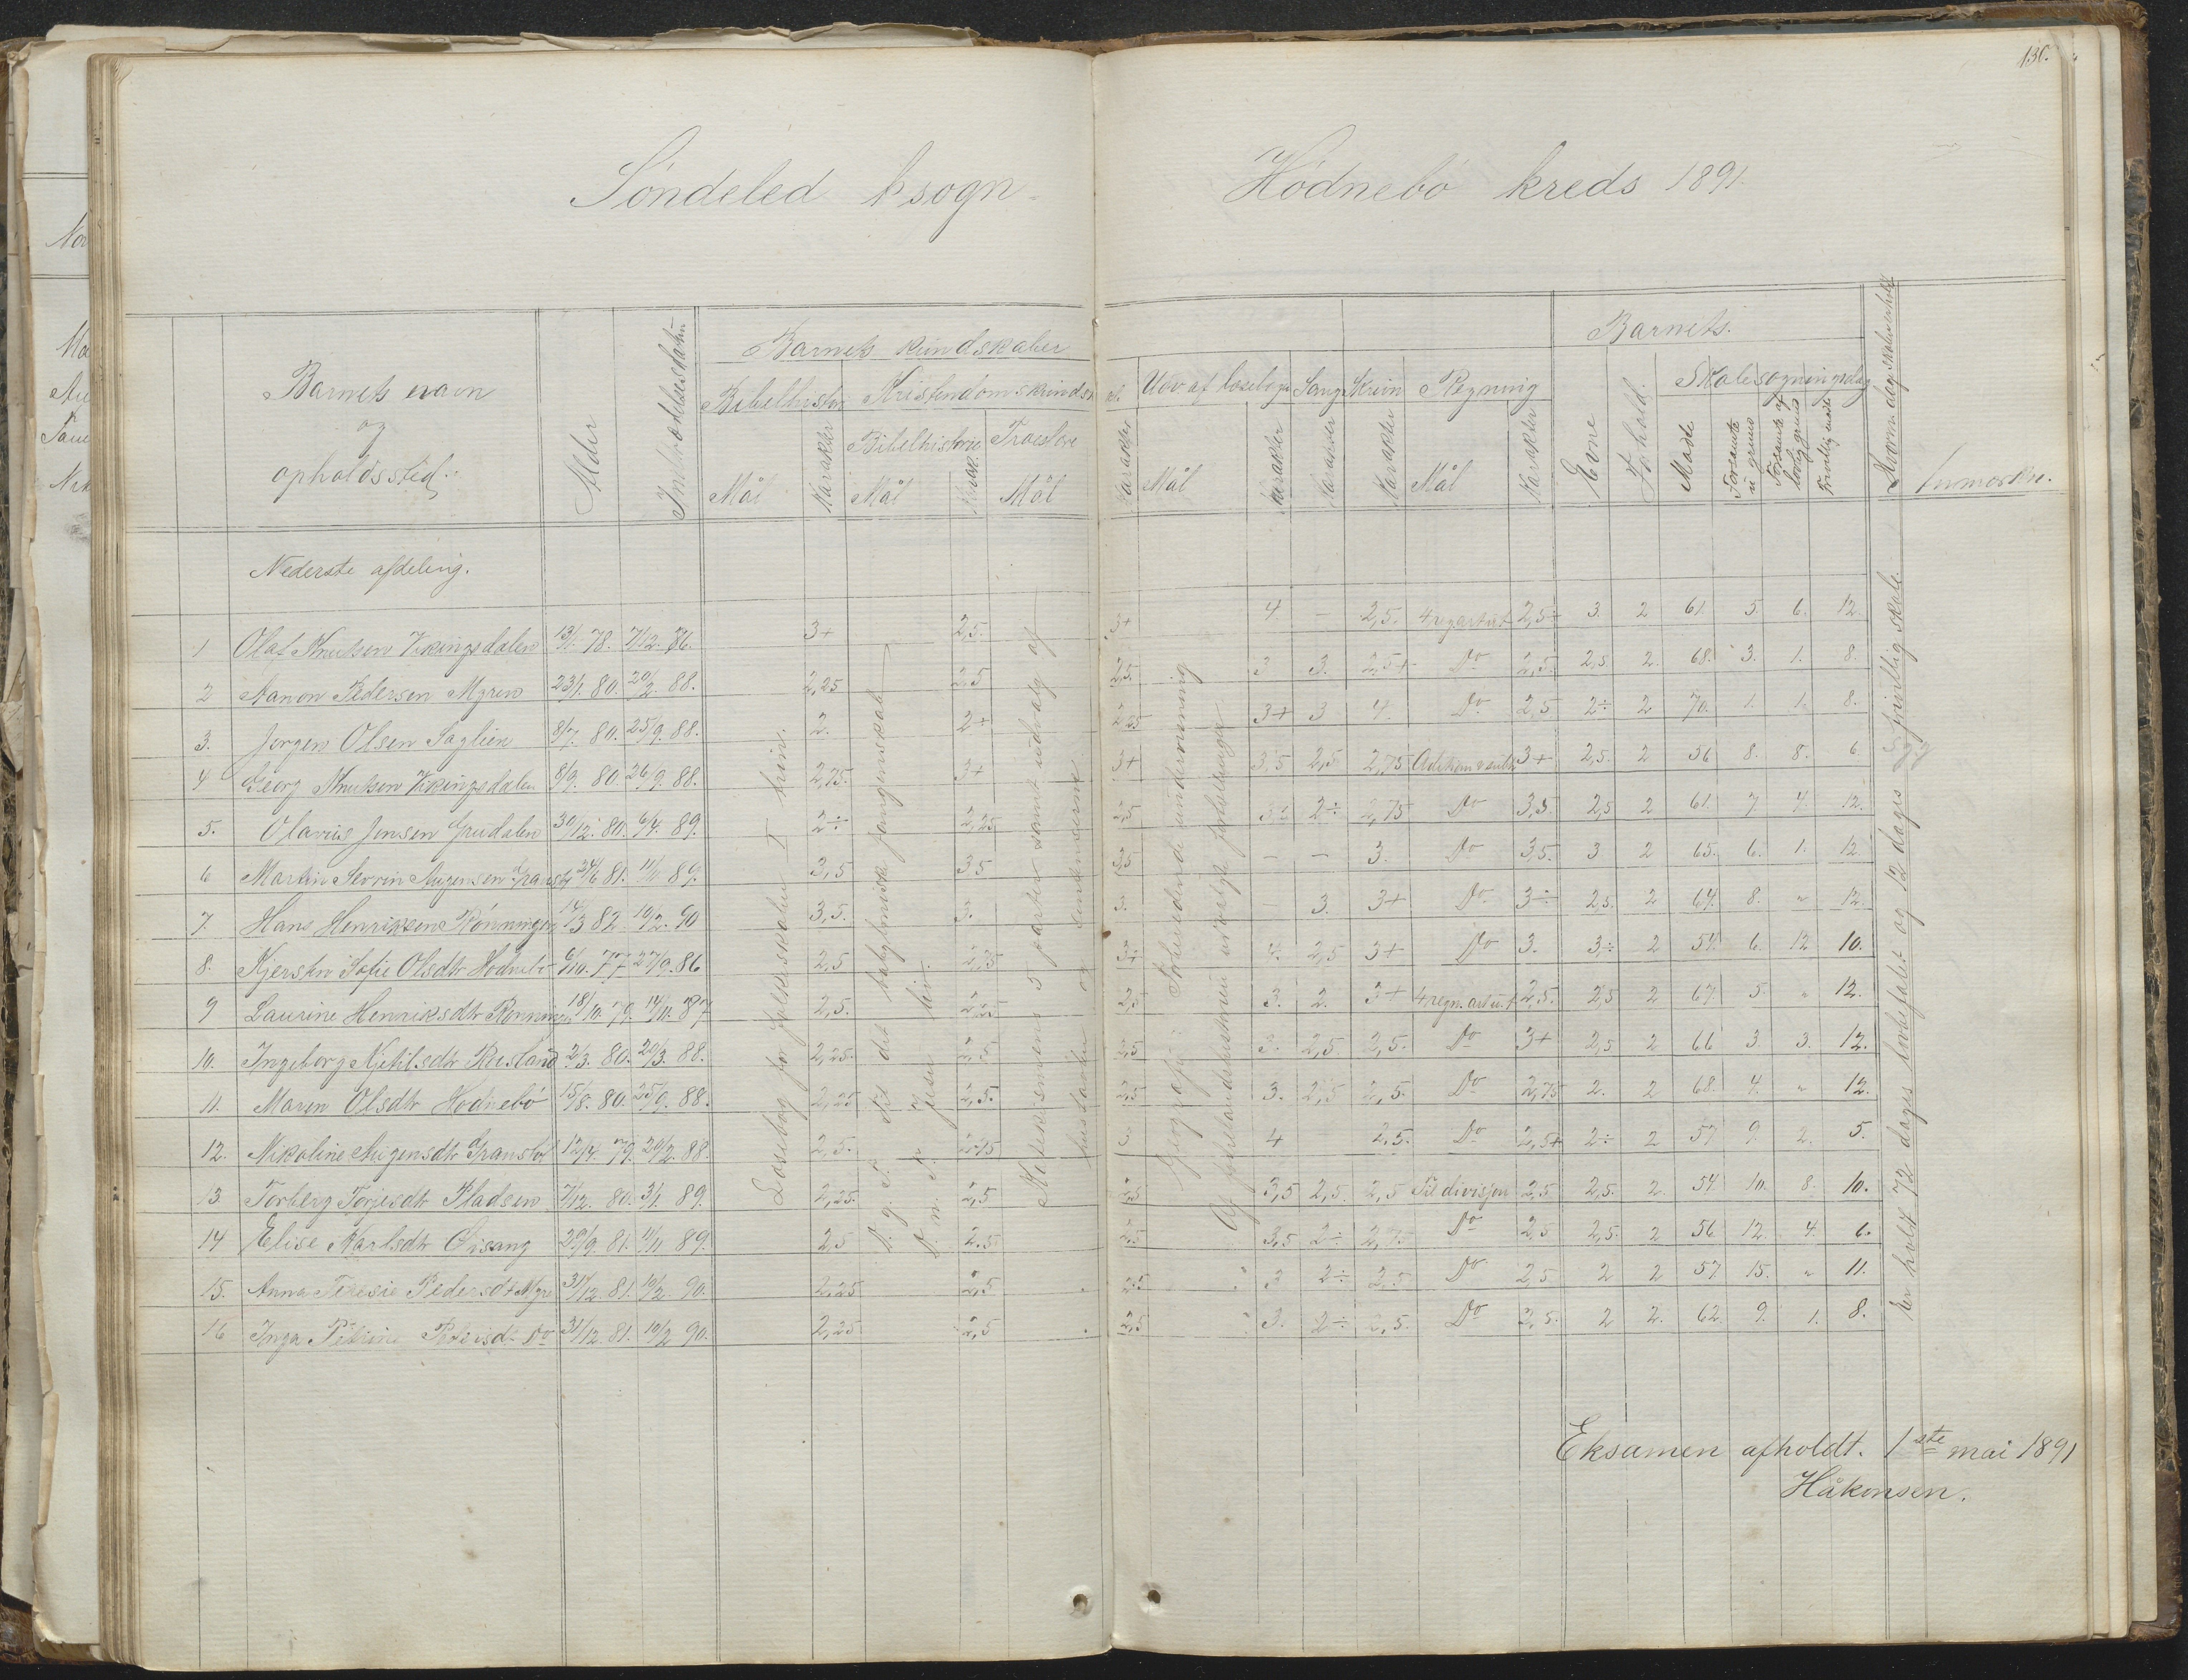 130.
Söndeled h sogn
Hödnebö kreds 1891.
Barnets navn
og
opholdssted.
Alder
Indtrædelsesdatum
Barnets kundskaber
Bibelhistor
Kristendomskundsk
Mål
Karakter
Bibelhistorie
Mål
Troeslære
Mål
Karakter
Udv af læsebogen
Mål
Karakter
Sang
Karakter
Skriv
Karakter
Regning
Mål
Karakter
Barnets.
Evne
Forhold.
Skolesøgningsdag
Møde
Forsømte u grund
Forsømte af lovlig grund
Frivillig møde
Anmærkn.
Nederste afdeling.
1 Olaf Knutsen Vikingsdalen 13/1. 78. 7/12. 86. 3+ 2,5. 3+ 4. – 2,5. 4 regnartūt 2,5÷ 3. 2 61. 5. 6. 12.
2 Aanon Pedersen Myren 23/1. 80. 20/2. 88. 2,25 2,5 2,5. 3 3. 2,5+ Do 2,5. 2,5 2. 68. 3. 1. 8.
3. Jørgen Olsen Saglien 8/7. 80. 25/9. 88. 2. 2+ 2,25 3+ 3 4. Do 2,5 2÷ 2 70. 1. 1. 8.
4 Georg Knutsen Vikingsdalen 8/9. 80. 26/9. 88. 2,75. 3+ 3+ 3,5 2,5 2,75 3+ 2,5. 2 56 8. 8. 6.
5. Olavus Jensen Grudalen 30/12. 80. 6/4. 89. 2÷ 2,25 2,5 2÷ 2,75 Do 3,5. 2,5 2 61. 7. 4. 12.
6 Martin Severin Augensen 24/6 81. 89. 3,5 3,5 3,5 – – 3. Do 3,5. 3 2 65. 6. 1. 12.
7. Hans Henriksen Rönningen 14/3 82 10/2. 90 3,5. 3. 3. – 3. 3+ Do 3÷ 2,5. 2 64. 8. " 12.
8. Kjerstin Sofie Olsdtr Hödnebö 6/10. 77 27/9. 86 2,5 2,75 3+ 4. 2,5 3+ Do 3. 3÷ 2 54. 6. 12 10.
9 Laurine Henriksdtr Rönningen 18/10. 79. 14/11. 87 2,5. 2,25 2,5 3. 2. 3+ 4 regn. artūt 2,5. 2,5 2 67. 5. " 12.
10. Ingeborg Kjetilsdtr 2/3. 80. 20/3. 88. 2,25. 2,5 2,5 3. 2,5. 2,5. Do 3+ 2,5 2 66 3. 3. 12.
11. Maren Olsdtr Hödnebö 15/8. 80. 25/9. 88. 2,25 2,5. 2,5 3. 2,5 2,5. Do 2,75 2. 2 68. 4. " 12.
12. Nikoline Augensdtr Granstøl 12/4. 79. 20/2. 88. 2,5. 2,75 3. 4 2,5. Do 2,5+ 2÷ 2 57 9. 2. 5.
13 Torberg Torjesdtr Pladsen 7/12. 80. 3/1. 89. 2,25. 2,5 2,5 3,5 2,5. 2,5 Til divisjon 2,5 2,5. 2. 54 10. 8. 10.
14 Elise Karlsdtr Öisang 29/9. 81. 11/11 89. 2,5 2,5. 2,5 3,5 2÷ 2,75 Do 2,5 2,5. 2 56 12. 4. 6.
15. Anna Teresie Pedersdtr Myr 31/12. 81. 10/2. 90. 2,25 2,5. 2,5 3 2÷ 2,5 Do 2,5. 2 2 57. 15. " 11.
16 Inga Petrine Pedersdt. Do 31/12. 81. 10/2. 90. 2,25 2,5 2,5 3. 2÷ 2,5. Do 2,5. 2 2. 62. 9. 1. 8.
Læsebog for folkeskolen I trin.
D. g. T. til det babyloniske fangenskab
D. n. T. Jesu liv.
Katekismens 5 parter samt udvalg af
hustavlen og
Geografi: Forberedende undervisning
Af fædrelandshistorien udvalgte fortællinger
Her holdt 72 dages lovbefalet og 12 dages frivillig skole.
Eksamen afholdt. 1ste mai 1891
Håkonsen.